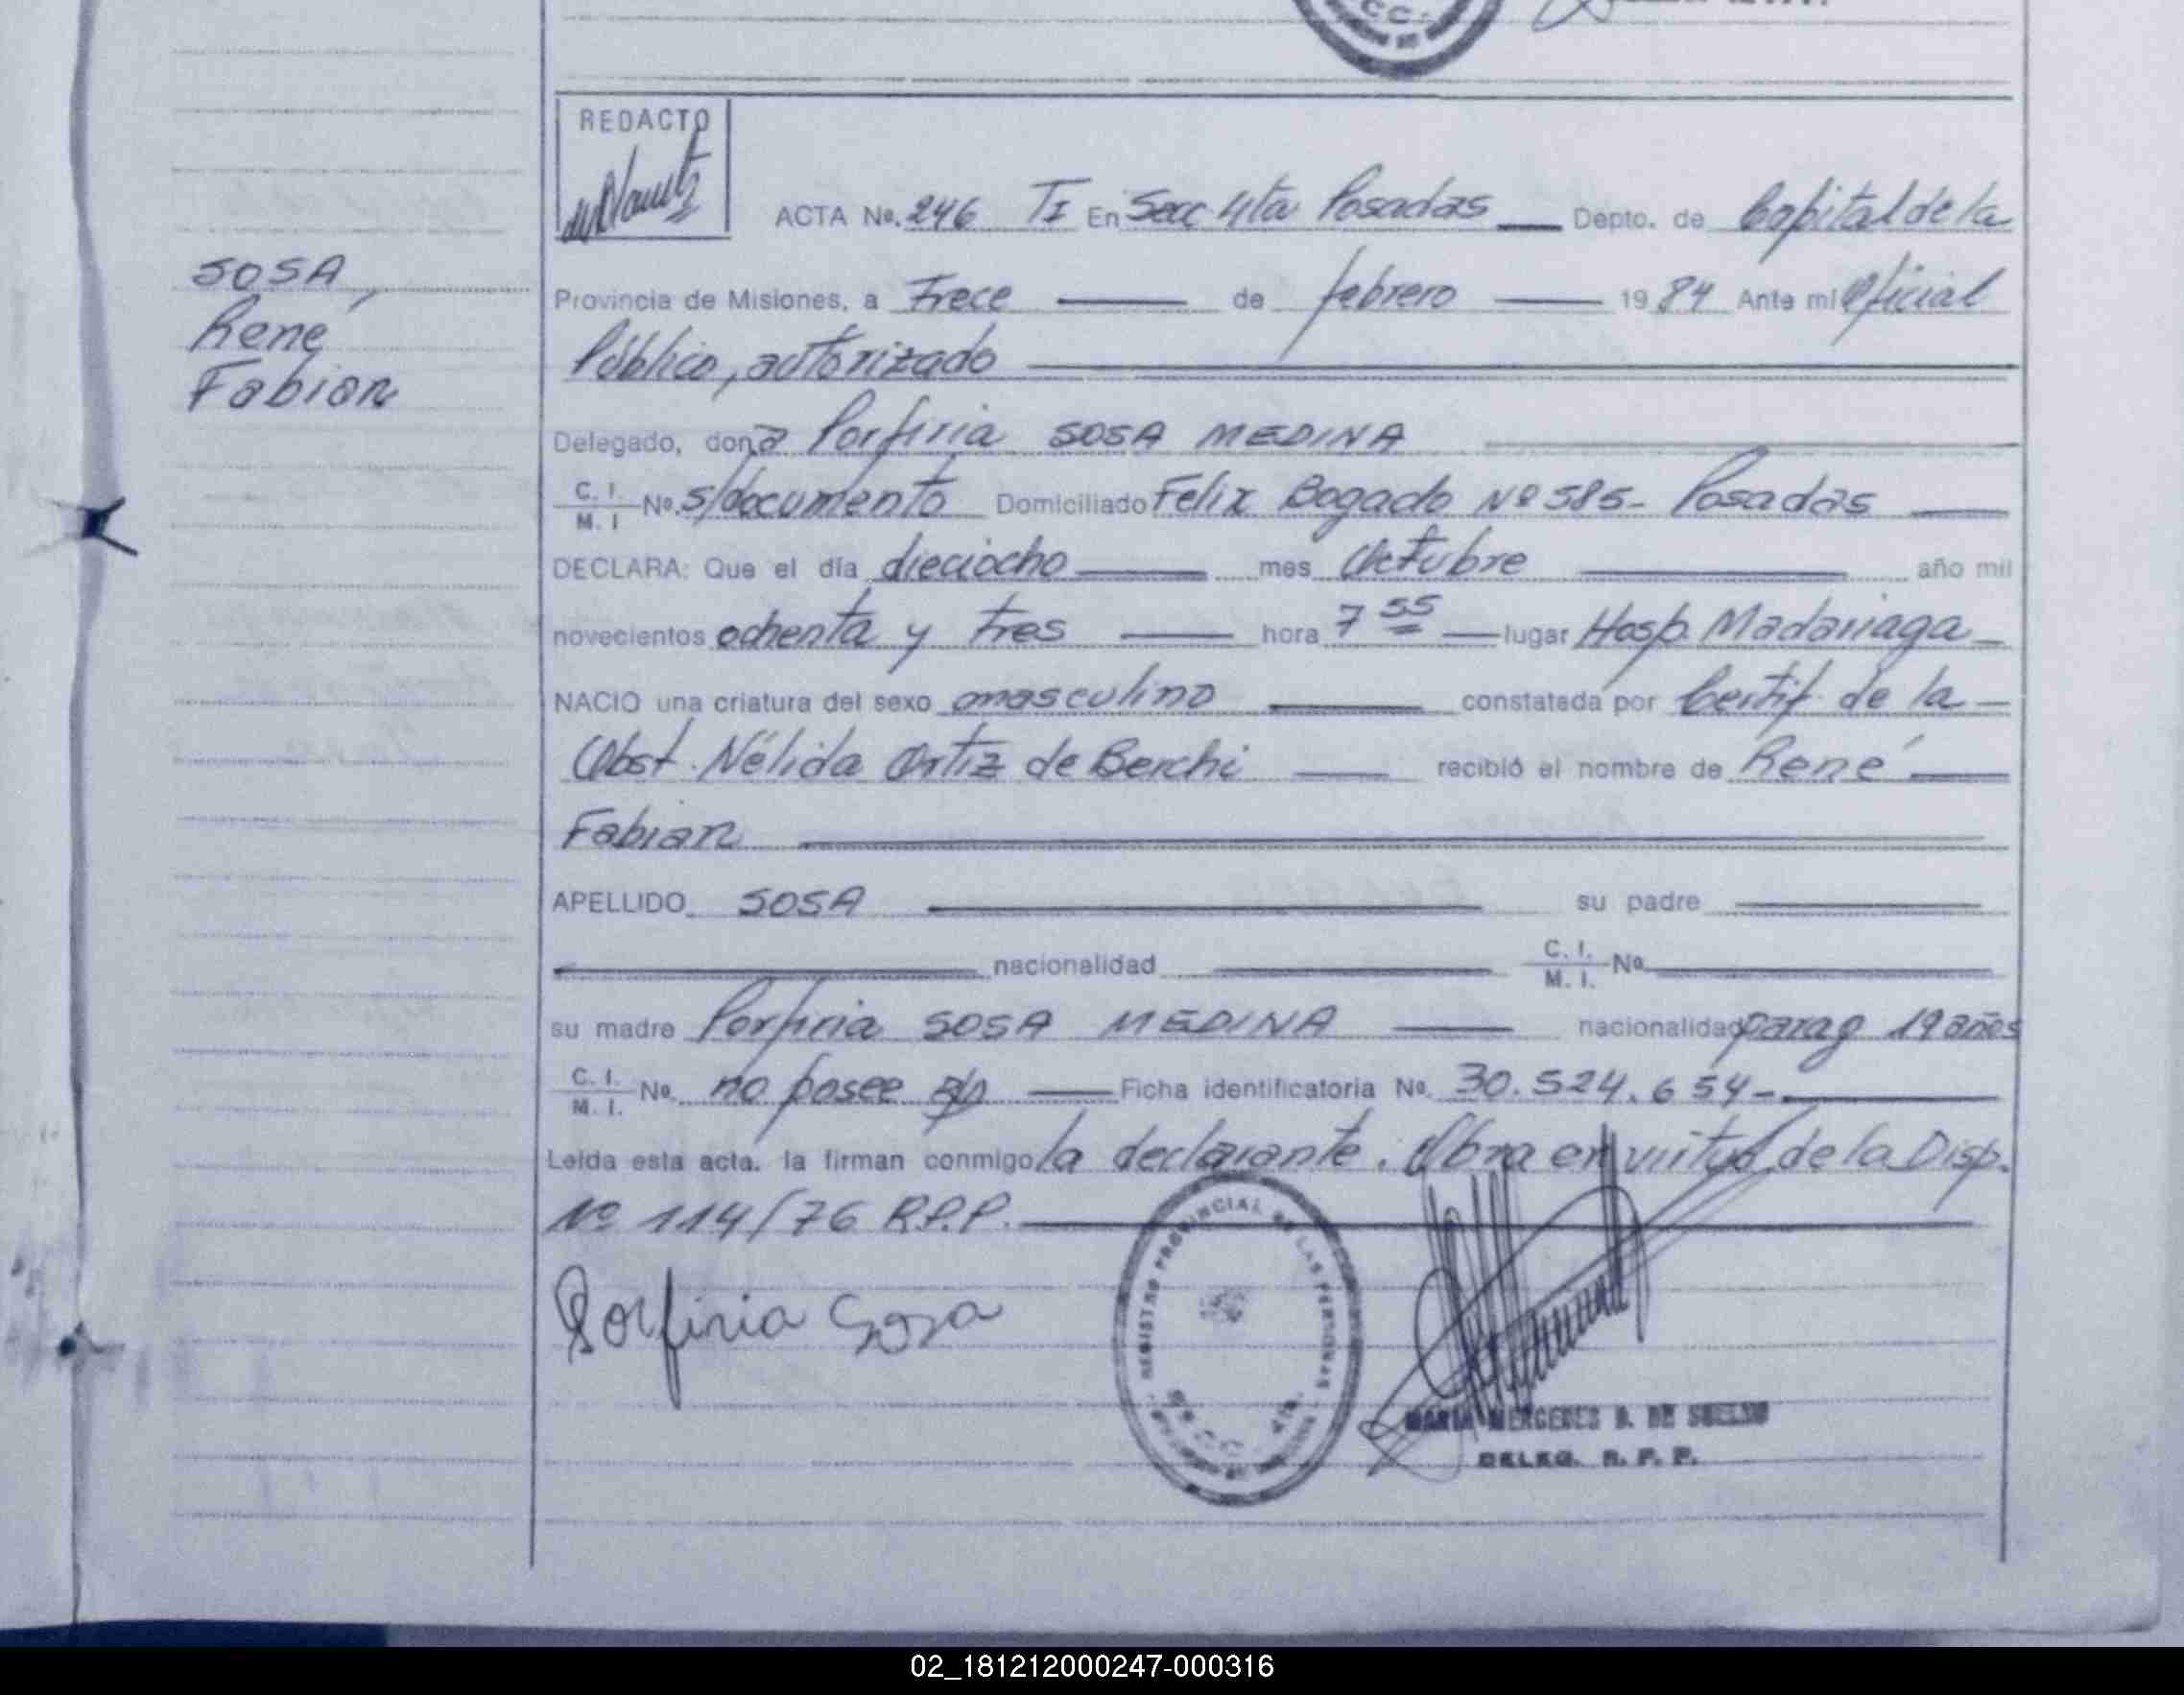 REDACTO
ACTA No. 246 TI En Secc 4ta Posadas Depto. de Capital de la
SOSA,
René
Fabian
Provincia de Misiones, a Trece de febrero 1984 Ante mí Oficial
Público, autorizado
Delegado, doña Porfiria SOSA MEDINA
C. I. M. I No. s/documento Domiciliado Felix Bogado Nº 585- Posadas
DECLARA: Que el día dieciocho mes Octubre año mil
novecientos ochenta y tres hora 7 55 lugar Hosp. Madariaga
NACIO una criatura del sexo masculino constatada por Certif. de la
Obst. Nélida Ortiz de Berchi recibió el nombre de René
Fabian
APELLIDO SOSA su padre
nacionalidad C. I. M. I. No
su madre Porfiria SOSA MEDINA nacionalidad parag 19 años
C. I. M. I. No. no posee Ficha identificatoria No. 30.524.654-
Leída esta acta, la firman conmigo la declarante. Obra en virtud de la Disp.
Nº 114/76 R.P.P.
Porfiria Sosa
REGISTRO PROVINCIAL DE LAS PERSONAS
MARIA MERCEDES D. DE
DELEG. R. P. P.
02_181212000247-000316